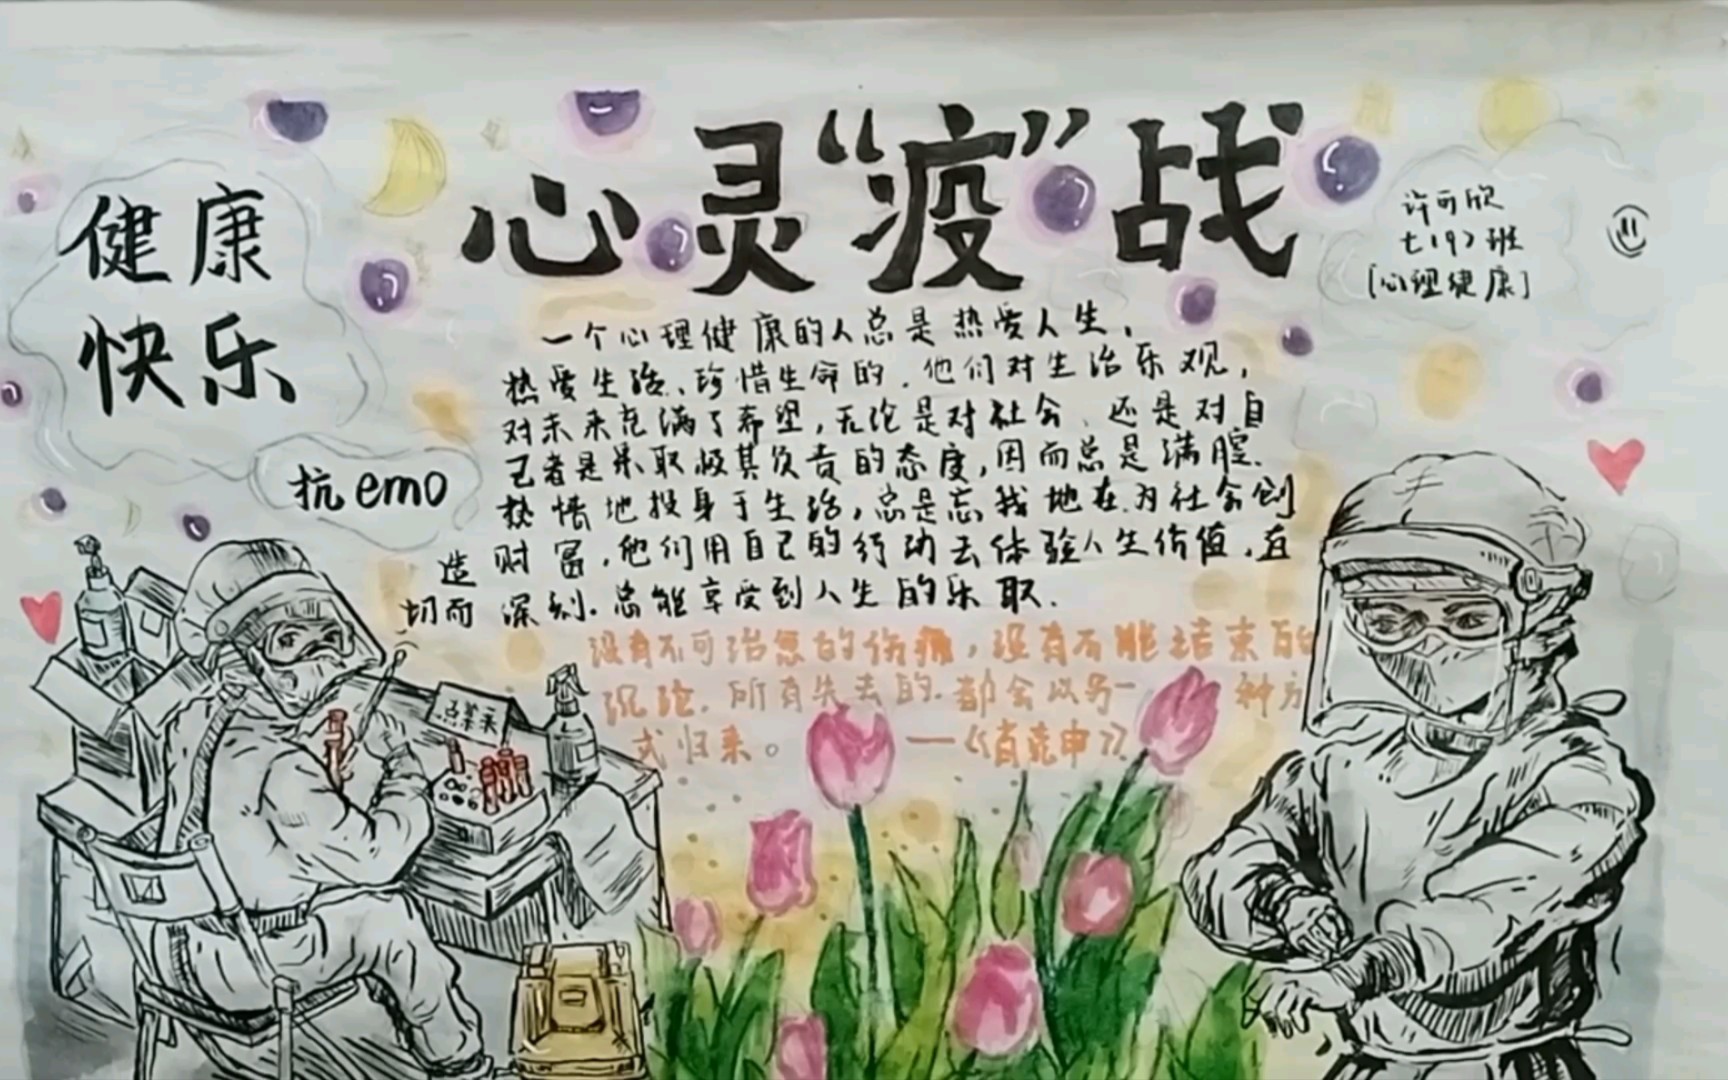 心灵“疫”战
健康
快乐
抗emo
许可欣
七(9)班
[心理健康]
一个心理健康的人总是热爱人生,
热爱生活、珍惜生命的.他们对生活乐观,
对未来充满了希望,无论是对社会、还是对自
己者是采取极其负责的态度,因而总是满腔
热情地投身于生活,总是忘我地在为社会创
造财富,他们用自己的行动去体验人生价值,直
切而深刻.总能享受到人生的乐取.
没有不可治愈的伤痛,没有不能结束的
沉沦.所有失去的.都会以另一种方
式归来。——《肖克申》